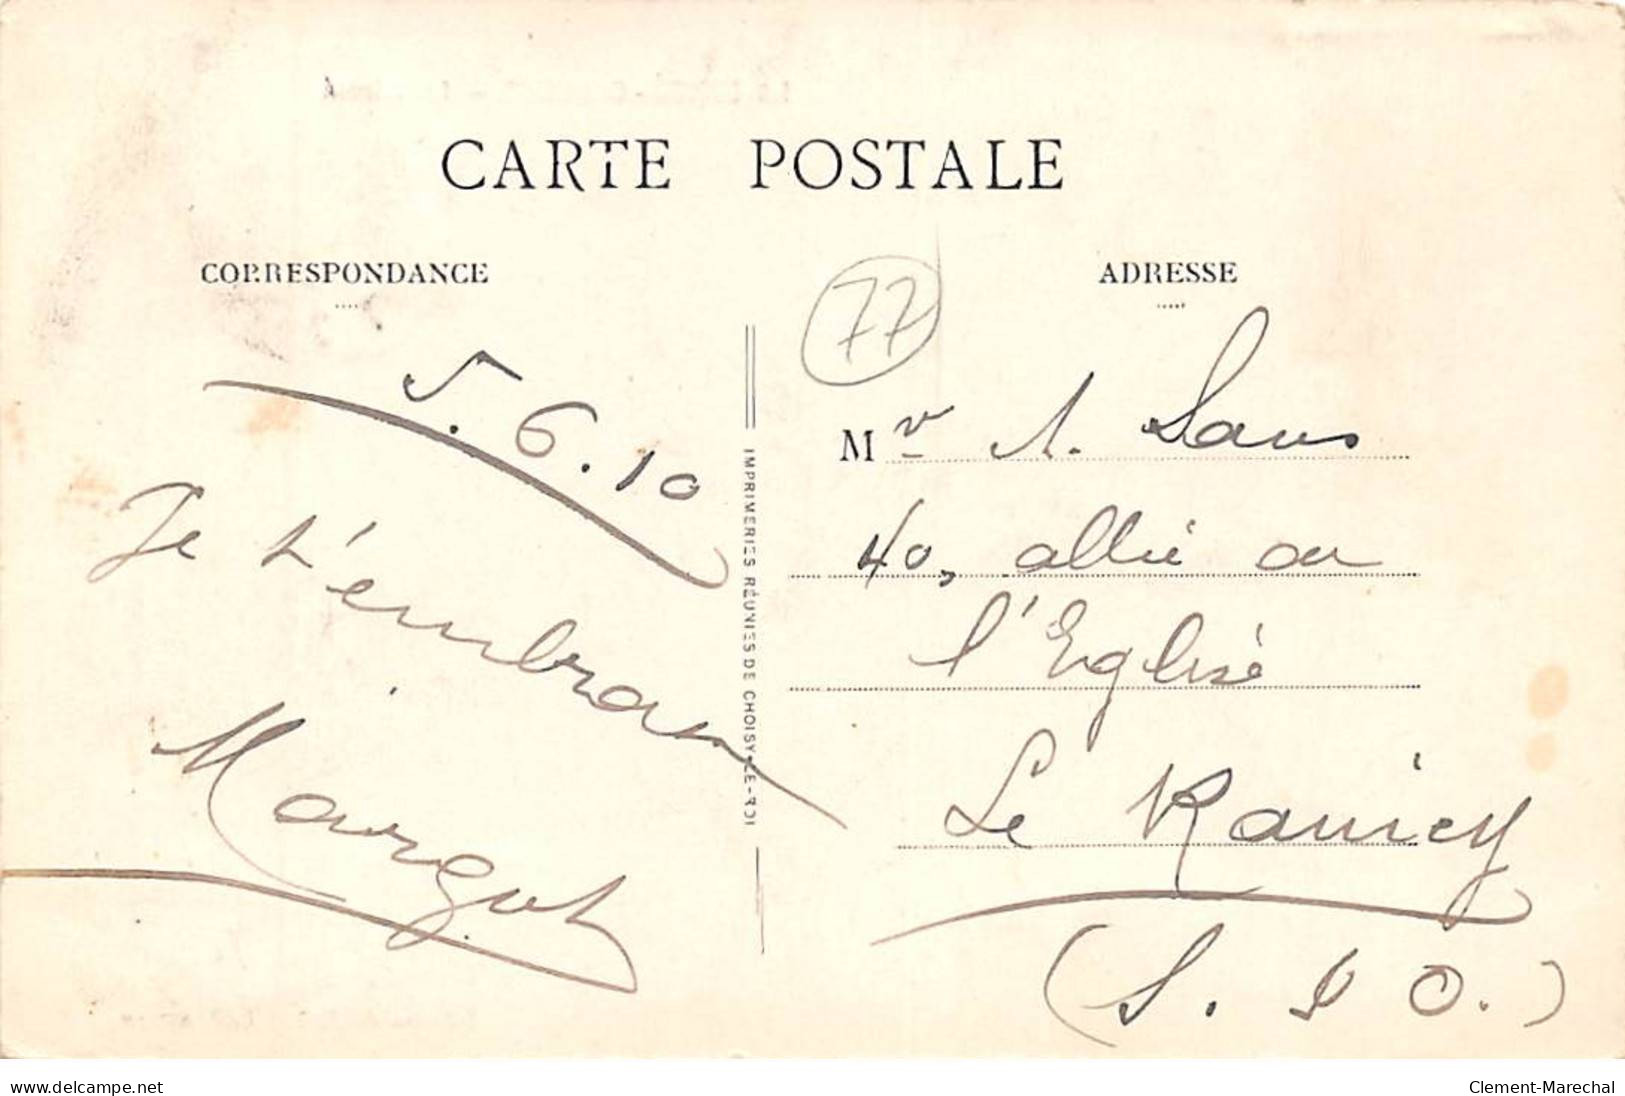 CARTE POSTALE
CORRESPONDANCE
ADRESSE
77
5.6.10
Je t'embrasse
Margot
IMPRIMERIES RÉUNIES DE CHOISY-LE-ROI
Mr A. Sans
40, allée de
l'Eglise
Le Raincy
(S. & O.)
www.delcampe.net
Clement-Marechal